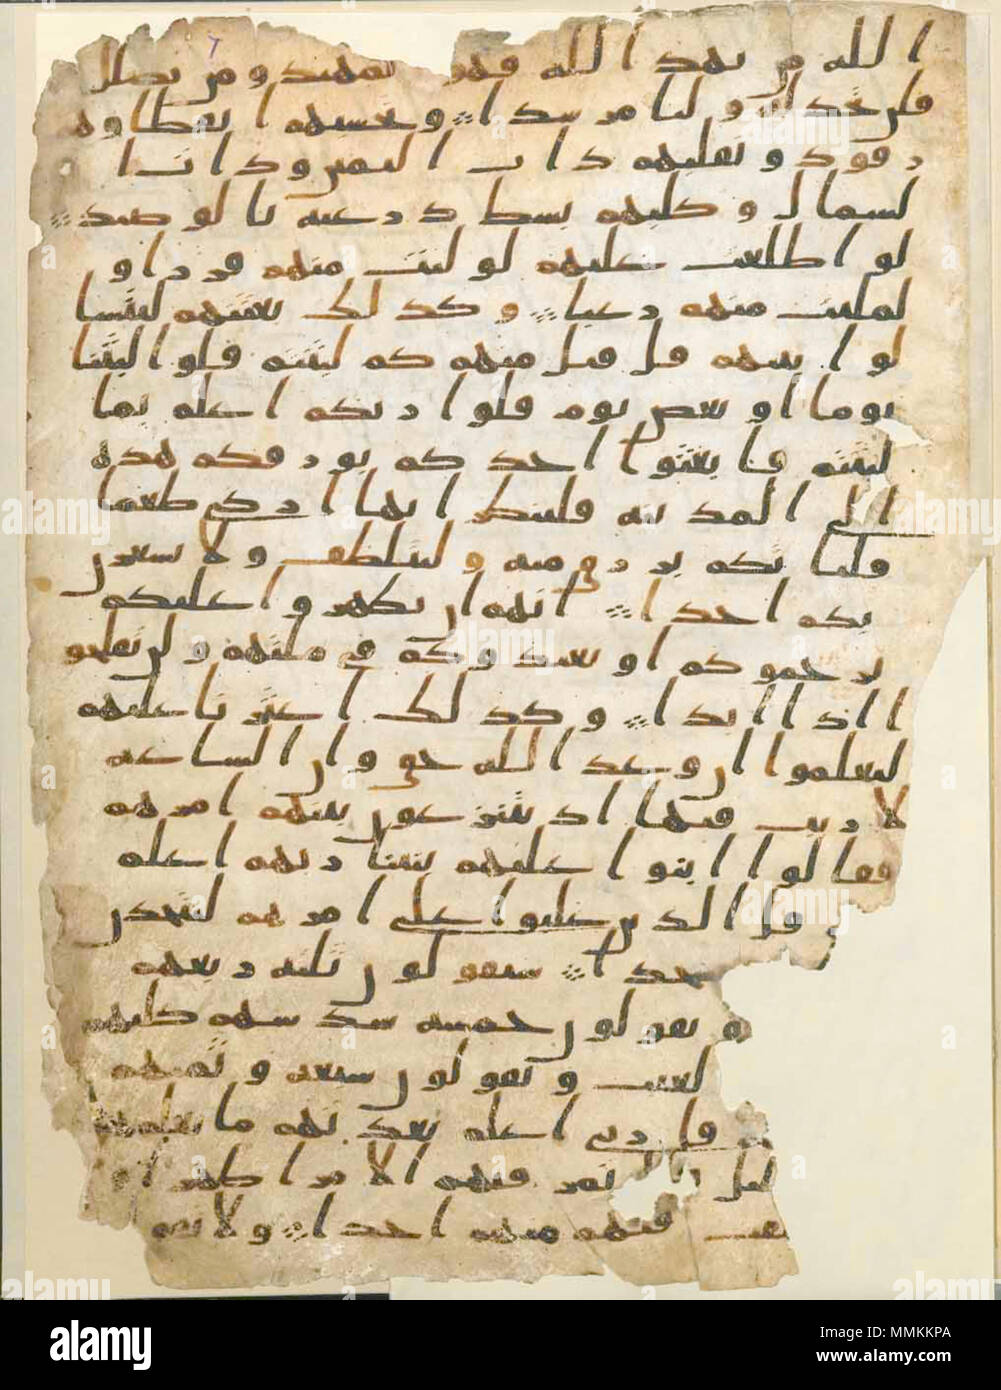 الله من يهد الله فهو المهتد ومن يضلل
فلن تجد له وليا مرشدا وتحسبهم ايقظا وهم
رقود ونقلبهم ذات اليمين وذات ا
لشمال وكلبهم بسط ذرعيه بالوصيد
لو اطلعت عليهم لوليت منهم فررا و
لمليت منهم رعبا وكذلك بعثنهم ليتسا
لوا بينهم قل قيل منهم كم لبثتم قلوا لبثنا
يوما او بعض يوم قلوا ربكم اعلم بما
لبثتم فابعثوا احدكم بورقكم هذه
الى المدينه فلينظر ايها ازكى طعما
فلياتكم برزق منه وليتلطف ولا يشعرن
بكم احدا انهم ان يظهروا عليكم
يرجموكم او يعيدوكم في ملتهم ولن تفلحو
ا اذا ابدا وكذلك اعثرنا عليهم
ليعلموا ان وعد الله حق وان الساعه
لا ريب فيها اذ يتنزعون بينهم امرهم
فقالوا ابنوا عليهم بنينا ربهم اعلم
قل الذين غلبوا على امرهم لنتخذن
جدا سيقولون ثلثه ربعهم
ويقولون خمسه سدسهم كلبهم
لغيب ويقولون سبعه وثمنهم
قل ربي اعلم بعدتهم ما يعلمهم
ليل تمر فيهم الا مرا ظهرا
فيهم منهم احدا ولا تقو
alamy
Image ID: MMKKPA
www.alamy.com